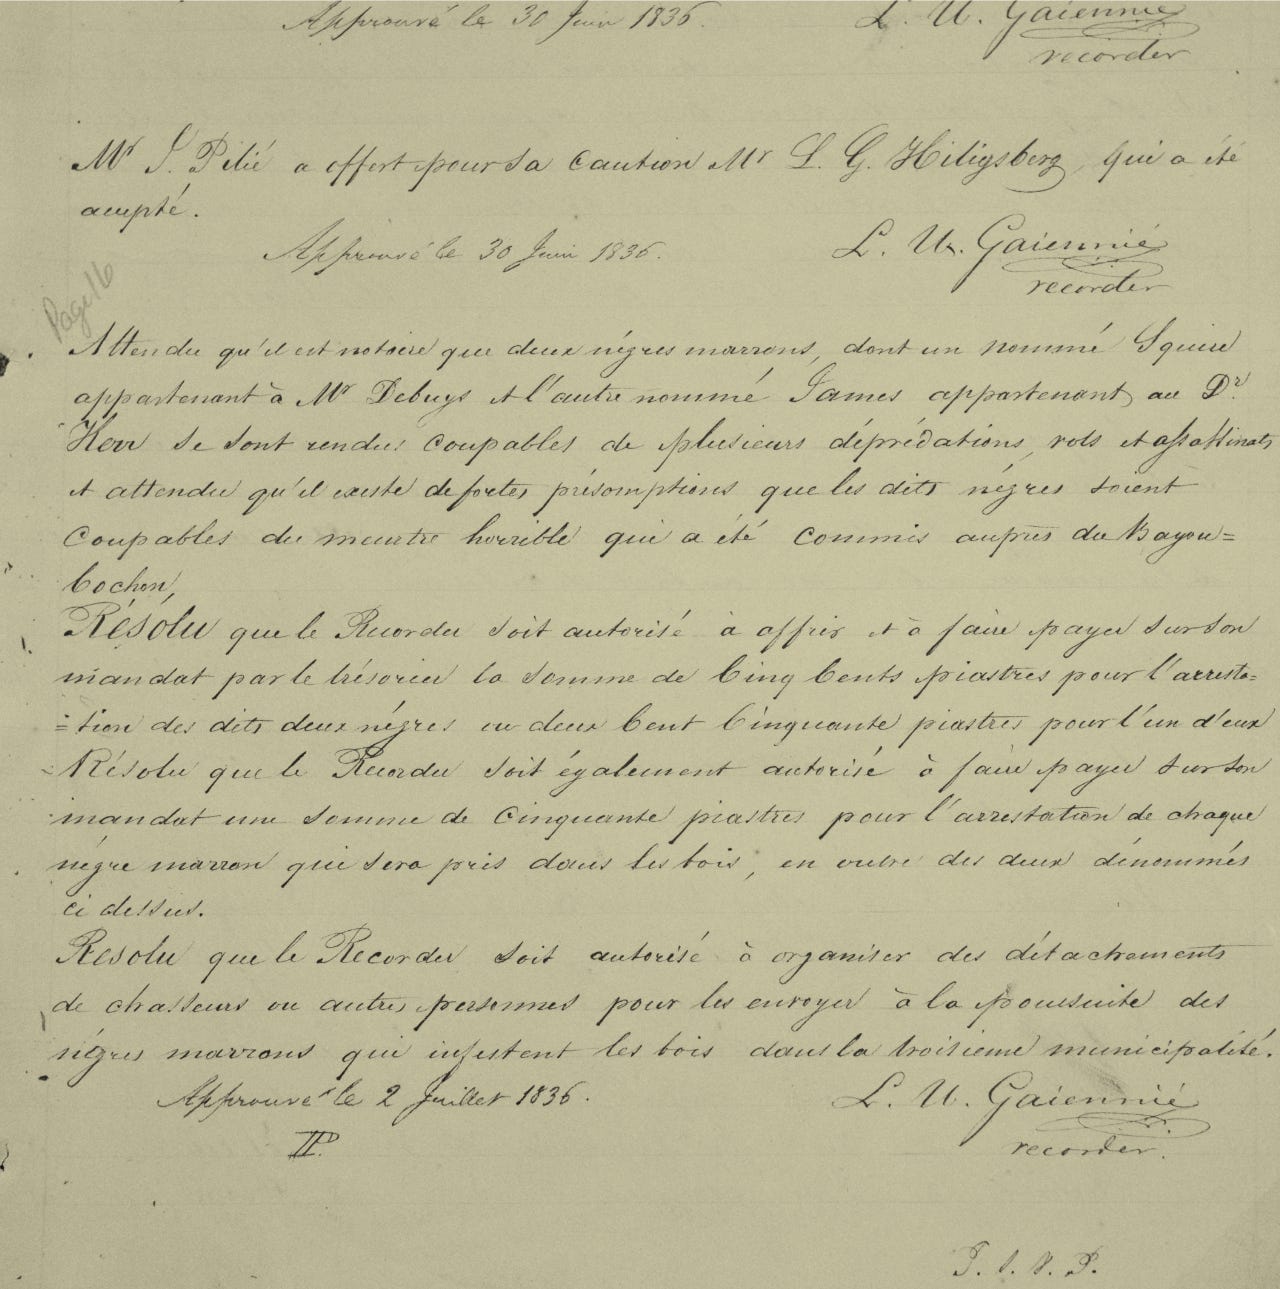 Approuvé le 30 Juin 1836. L. U. Gaiennié
recorder
Mr J. Pilié a offert pour sa caution Mr L. G. Hiligsberg, qui a été
accepté.
Approuvé le 30 Juin 1836. L. U. Gaiennié
recorder
Page 16
Attendu qu'il est notoire que deux négres marrons, dont un nommé Squire
appartenant à Mr Debuys et l'autre nommé James appartenant au Dr.
Kerr se sont rendus coupables de plusieurs déprédations, vols et assassinats
et attendu qu'il existe de fortes présomptions que les dits négres soient
coupables du meurtre horrible qui a été commis auprès du Bayou=
Cochon,
Résolu que le Recorder soit autorisé à offrir et à faire payer sur son
mandat par le trésorier la somme de Cinq Cents piastres pour l'arresta=
=tion des dits deux négres ou deux Cent Cinquante piastres pour l'un d'eux
Résolu que le Recorder soit également autorisé à faire payer sur son
mandat une somme de Cinquante piastres pour l'arrestation de chaque
négre marron qui sera pris dans les bois, en outre des deux dénommés
ci dessus.
Resolu que le Recorder soit autorisé à organiser des détachements
de chasseurs ou autres personnes pour les envoyer à la poursuite des
négres marrons qui infestent les bois dans la troisieme municipalité.
Approuvé le 2 Juillet 1836. L. U. Gaiennié
recorder.